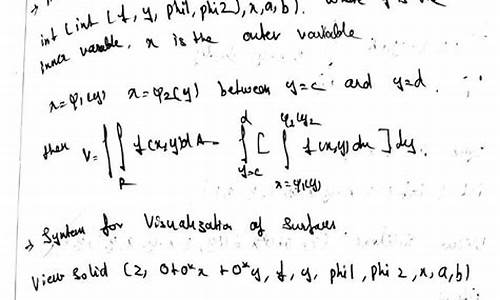 int (int (f, y, phi1, phi2), x, a, b). where y is the
inner varable, x is the outer variable.
x=φ1(y) x=φ2(y) between y=c and y=d.
then V= ∬ f(x,y)dA = ∫ [ ∫ f(x,y) dx ] dy.
R y=c d x=φ1(y) φ2(y)
→ Syntax for Visualization of Surfaces.
View Solid (z, 0+0*x +0*y, f, y, phi1, phi2, x, a, b)